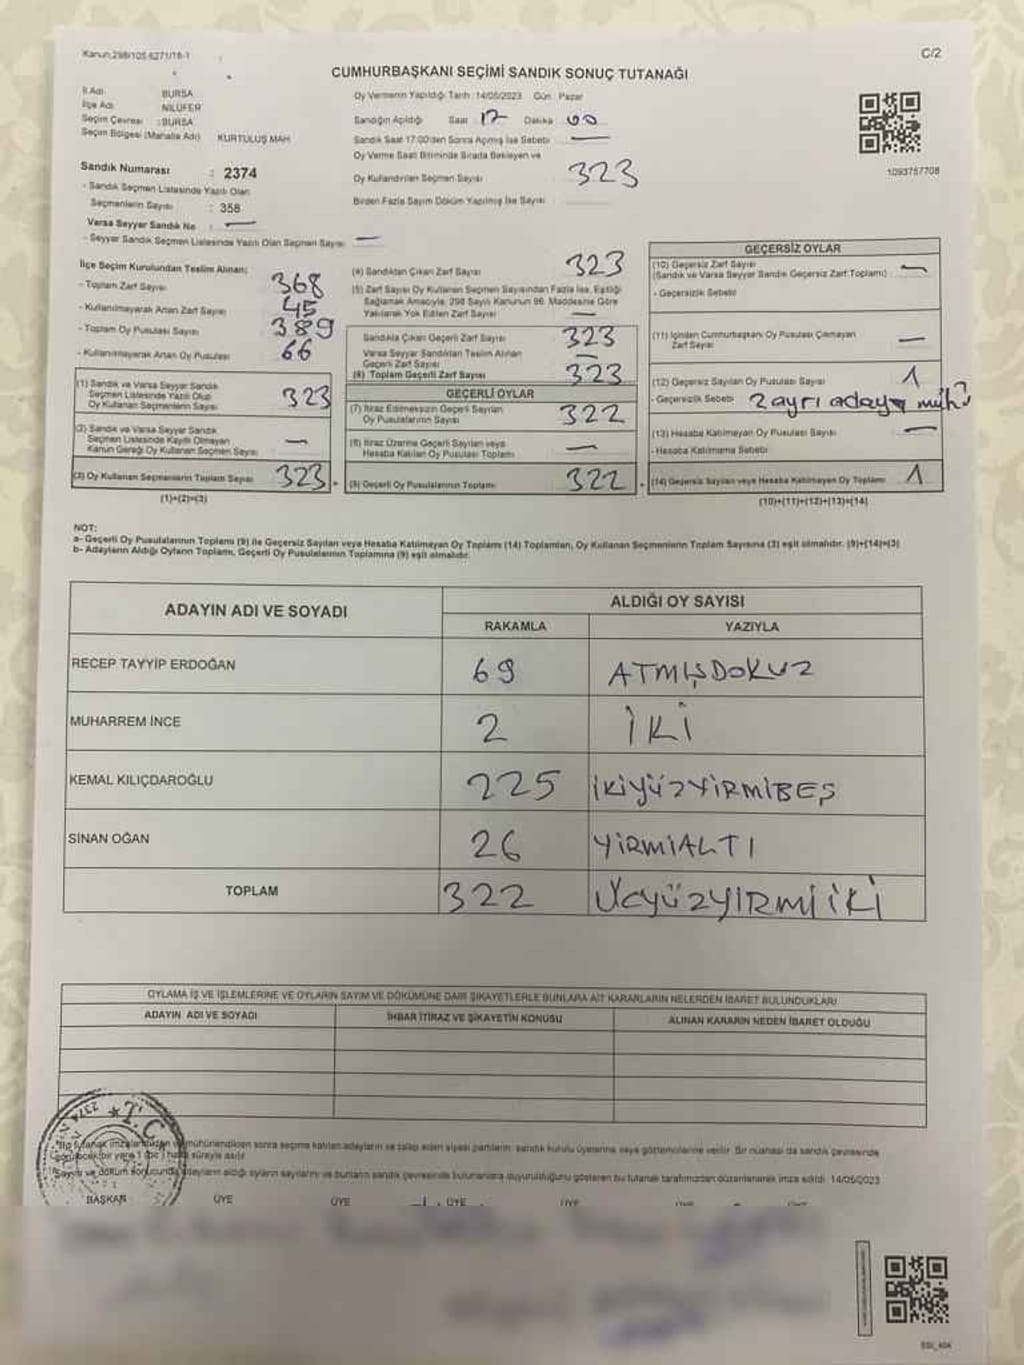 Kanun:298/105 6271/16-1
C/2
CUMHURBAŞKANI SEÇİMİ SANDIK SONUÇ TUTANAĞI
İl Adı BURSA
İlçe Adı NİLÜFER
Seçim Çevresi : BURSA
Seçim Bölgesi (Mahalle Adı) KURTULUŞ MAH
Sandık Numarası : 2374
- Sandık Seçmen Listesinde Yazılı Olan
Seçmenlerin Sayısı : 358
Varsa Seyyar Sandık No : —
- Seyyar Sandık Seçmen Listesinde Yazılı Olan Seçmen Sayısı —
Oy Vermenin Yapıldığı Tarih :14/05/2023 Gün : Pazar
Sandığın Açıldığı Saat 17 Dakika 00
Sandık Saat 17:00'den Sonra Açılmış İse Sebebi —
Oy Verme Saati Bitiminde Sırada Bekleyen ve
Oy Kullandırılan Seçmen Sayısı 323
Birden Fazla Sayım Döküm Yapılmış İse Sayısı
1093757708
İlçe Seçim Kurulundan Teslim Alınan;
- Toplam Zarf Sayısı 368
- Kullanılmayarak Artan Zarf Sayısı 45
- Toplam Oy Pusulası Sayısı 389
- Kullanılmayarak Artan Oy Pusulası 66
(1) Sandık ve Varsa Seyyar Sandık
Seçmen Listesinde Yazılı Olup
Oy Kullanan Seçmenlerin Sayısı 323
(2) Sandık ve Varsa Seyyar Sandık
Seçmen Listesinde Kayıtlı Olmayan
Kanun Gereği Oy Kullanan Seçmen Sayısı —
(3) Oy Kullanan Seçmenlerin Toplam Sayısı 323
(1)+(2)=(3)
(4) Sandıktan Çıkan Zarf Sayısı 323
(5) Zarf Sayısı Oy Kullanan Seçmen Sayısından Fazla İse, Eşitliği
Sağlamak Amacıyla, 298 Sayılı Kanunun 98. Maddesine Göre
Yakılarak Yok Edilen Zarf Sayısı —
Sandıkta Çıkan Geçerli Zarf Sayısı 323
Varsa Seyyar Sandıktan Teslim Alınan
Geçerli Zarf Sayısı —
(6) Toplam Geçerli Zarf Sayısı 323
GEÇERLİ OYLAR
(7) İtiraz Edilmeksizin Geçerli Sayılan
Oy Pusulalarının Sayısı 322
(8) İtiraz Üzerine Geçerli Sayılan veya
Hesaba Katılan Oy Pusulası Toplamı —
(9) Geçerli Oy Pusulalarının Toplamı 322
GEÇERSİZ OYLAR
(10) Geçersiz Zarf Sayısı
(Sandık ve Varsa Seyyar Sandık Geçersiz Zarf Toplamı) —
- Geçersizlik Sebebi
(11) İçinden Cumhurbaşkanı Oy Pusulası Çıkmayan
Zarf Sayısı —
(12) Geçersiz Sayılan Oy Pusulası Sayısı 1
- Geçersizlik Sebebi 2 ayrı adaya
(13) Hesaba Katılmayan Oy Pusulası Sayısı —
- Hesaba Katılmama Sebebi
(14) Geçersiz Sayılan veya Hesaba Katılmayan Oy Toplamı 1
(10)+(11)+(12)+(13)=(14)
NOT:
a- Geçerli Oy Pusulalarının Toplamı (9) ile Geçersiz Sayılan veya Hesaba Katılmayan Oy Toplamı (14) Toplamları, Oy Kullanan Seçmenlerin Toplam Sayısına (3) eşit olmalıdır. (9)+(14)=(3)
b- Adayların Aldığı Oyların Toplamı, Geçerli Oy Pusulalarının Toplamına (9) eşit olmalıdır.
ADAYIN ADI VE SOYADI ALDIĞI OY SAYISI
RAKAMLA YAZIYLA
RECEP TAYYİP ERDOĞAN 69 ATMIŞDOKUZ
MUHARREM İNCE 2 İKİ
KEMAL KILIÇDAROĞLU 225 İKİYÜZYİRMİBEŞ
SİNAN OĞAN 26 YİRMİALTI
TOPLAM 322 ÜÇYÜZYİRMİİKİ
OYLAMA İŞ VE İŞLEMLERİNE VE OYLARIN SAYIM VE DÖKÜMÜNE DAİR ŞİKAYETLERLE BUNLARA AİT KARARLARIN NELERDEN İBARET BULUNDUKLARI
ADAYIN ADI VE SOYADI İHBAR İTİRAZ VE ŞİKAYETİN KONUSU ALINAN KARARIN NEDEN İBARET OLDUĞU
2374
T.C.
mühürlendikten sonra seçime katılan adayların ve talep eden siyasi partilerin sandık kurulu üyelerine veya gözlemcilerine verilir. Bir nüshası da sandık çevresinde
süreyle asılır
Sayım ve döküm sonucunda adayların aldığı oyların sayılarını ve bunların sandık çevresinde bulunanlara duyurulduğunu gösteren bu tutanak tarafımızdan düzenlenerek imza edildi. 14/05/2023
BAŞKAN ÜYE ÜYE ÜYE ÜYE ÜYE ÜYE